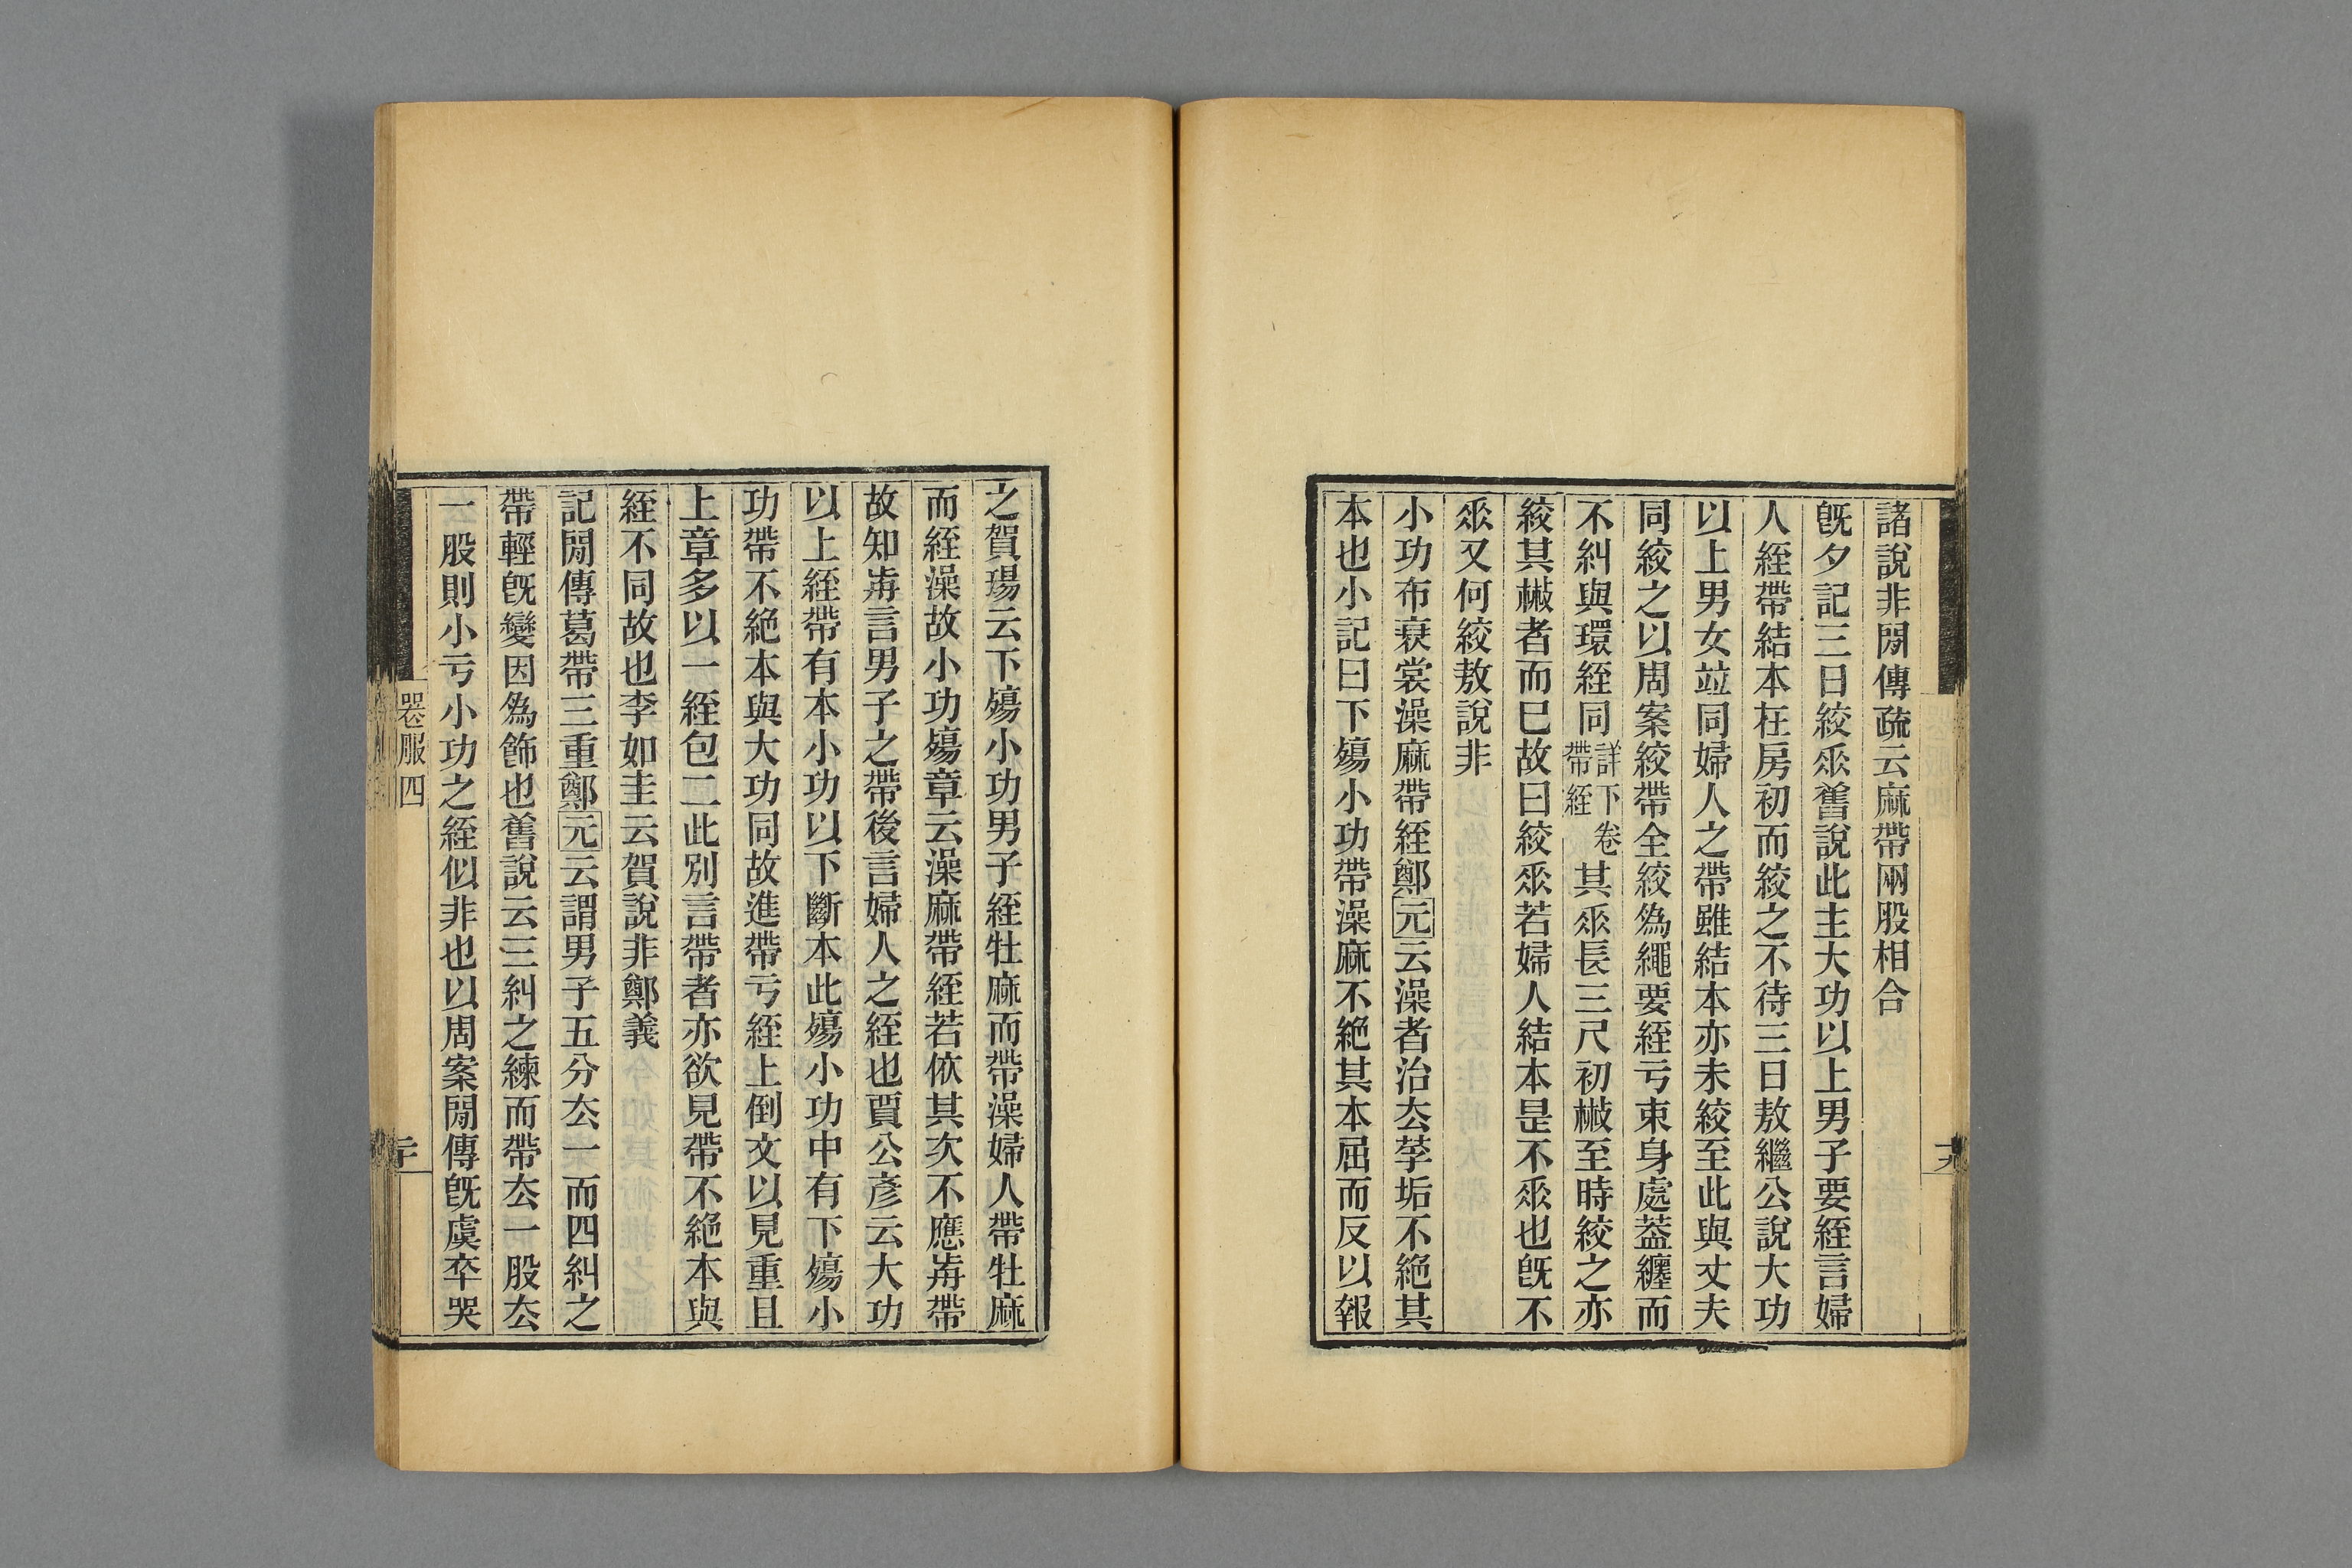 諸說非閒傳疏云麻帶兩股相合
旣夕記三日絞𠂹舊說此主大功以上男子要絰言婦
人絰帶結本在房初而絞之不待三日敖繼公說大功
以上男女竝同婦人之帶雖結本亦未絞至此與丈夫
同絞之以周案絞帶全絞爲繩要絰亏束身處葢纏而
不糾與環絰同詳下卷帶絰其𠂹長三尺初㪔至時絞之亦
絞其㪔者而已故曰絞𠂹若婦人結本昰不𠂹也旣不
𠂹又何絞敖說非
小功布衰裳澡麻帶絰鄭元云澡者治厺莩垢不絕其
本也小記曰下殤小功帶澡麻不絕其本屈而反以報
之賀瑒云下殤小功男子絰牡麻而帶澡婦人帶牡麻
而絰澡故小功殤章云澡麻帶絰若依其次不應歬帶
故知歬言男子之帶後言婦人之絰也賈公彥云大功
以上絰帶有本小功以下斷本此殤小功中有下殤小
功帶不絕本與大功同故進帶亏絰上倒文以見重且
上章多以一絰包二此別言帶者亦欲見帶不絕本與
絰不同故也李如圭云賀說非鄭義
記閒傳葛帶三重鄭元云謂男子五分厺一而四糾之
帶輕旣變因爲飾也舊說云三糾之練而帶厺一股厺
一股則小亏小功之絰似非也以周案閒傳旣虞卒哭
喪服四
二十
十九